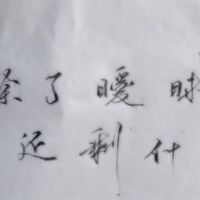 除了暧昧
还剩什